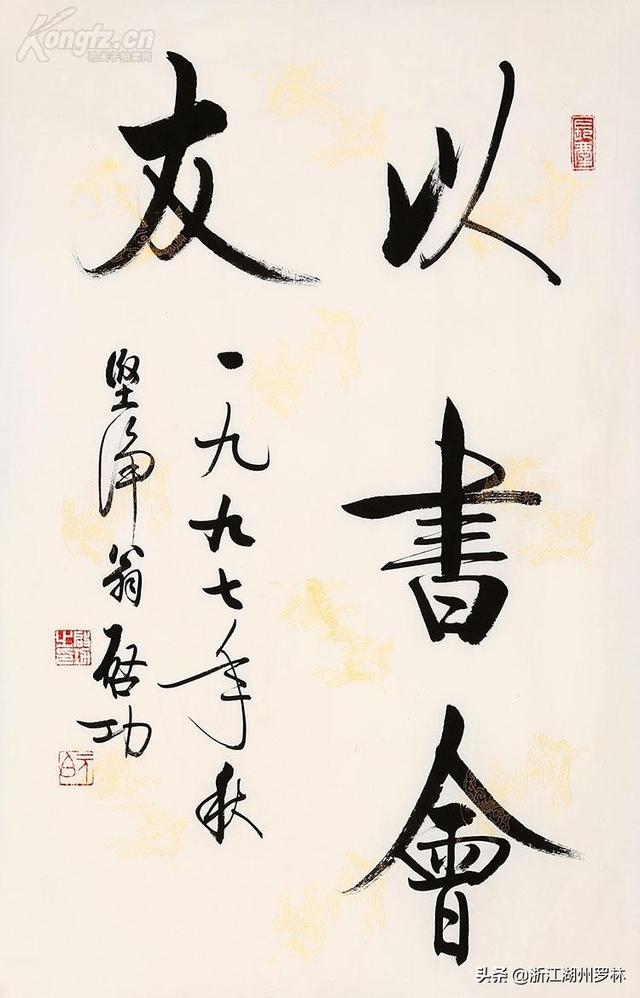 以書會
友
一九九七年秋
堅淨翁啓功
Kongfz.cn
孔夫子拍卖网
头条@浙江湖州罗林